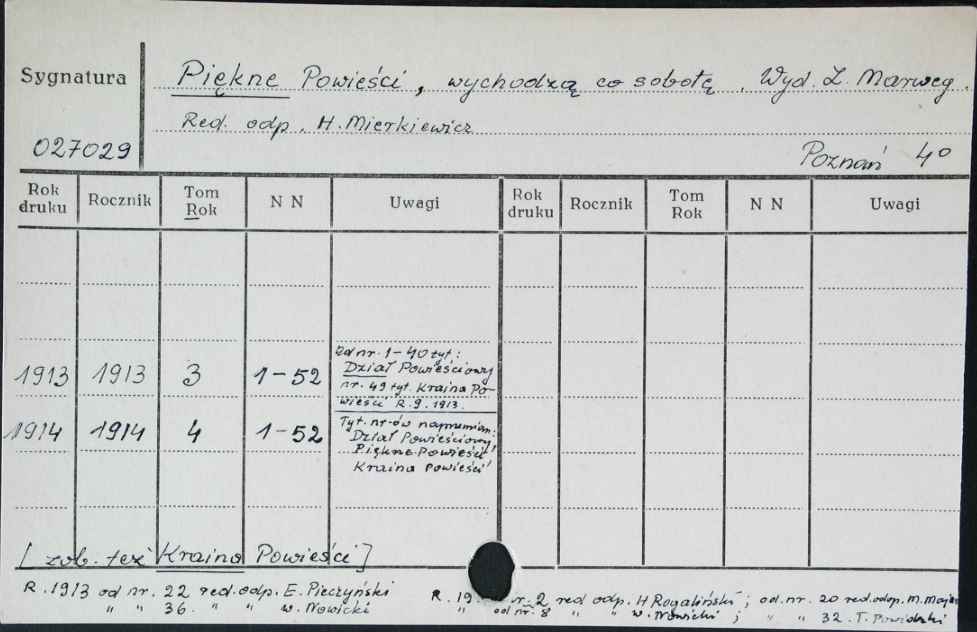 Sygnatura
Piękne Powieści, wychodzą co sobotę. Wyd. Z. Marweg.
Red. odp. H. Mierkiewicz
027029
Poznań 4°
Rok druku Rocznik Tom Rok N N Uwagi Rok druku Rocznik Tom Rok N N Uwagi
1913 1913 3 1-52
Od nr. 1-40 tyt:
Dział Powieściowy
nr. 49 tyt. Kraina Po-
wieści R. 9. 1913.
1914 1914 4 1-52
Tyt. nr-ów naprzemian:
Dział Powieściowy,
Piękne Powieści
Kraina Powieści
[zob. też Kraina Powieści]
R. 1913 od nr. 22 red. odp. E. Pieczyński
" " 36. " " W. Nowicki
R. 19 nr. 2 red odp. H Rogaliński; od. nr. 20 red. odp. M. Maj
" od nr. 8 " " W. Nowicki; " " 32. T. Powidzki